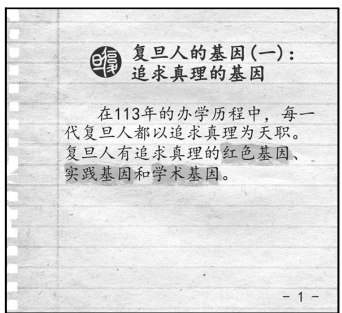 复旦
复旦人的基因(一):
追求真理的基因
在113年的办学历程中，每一
代复旦人都以追求真理为天职。
复旦人有追求真理的红色基因、
实践基因和学术基因。
- 1 -